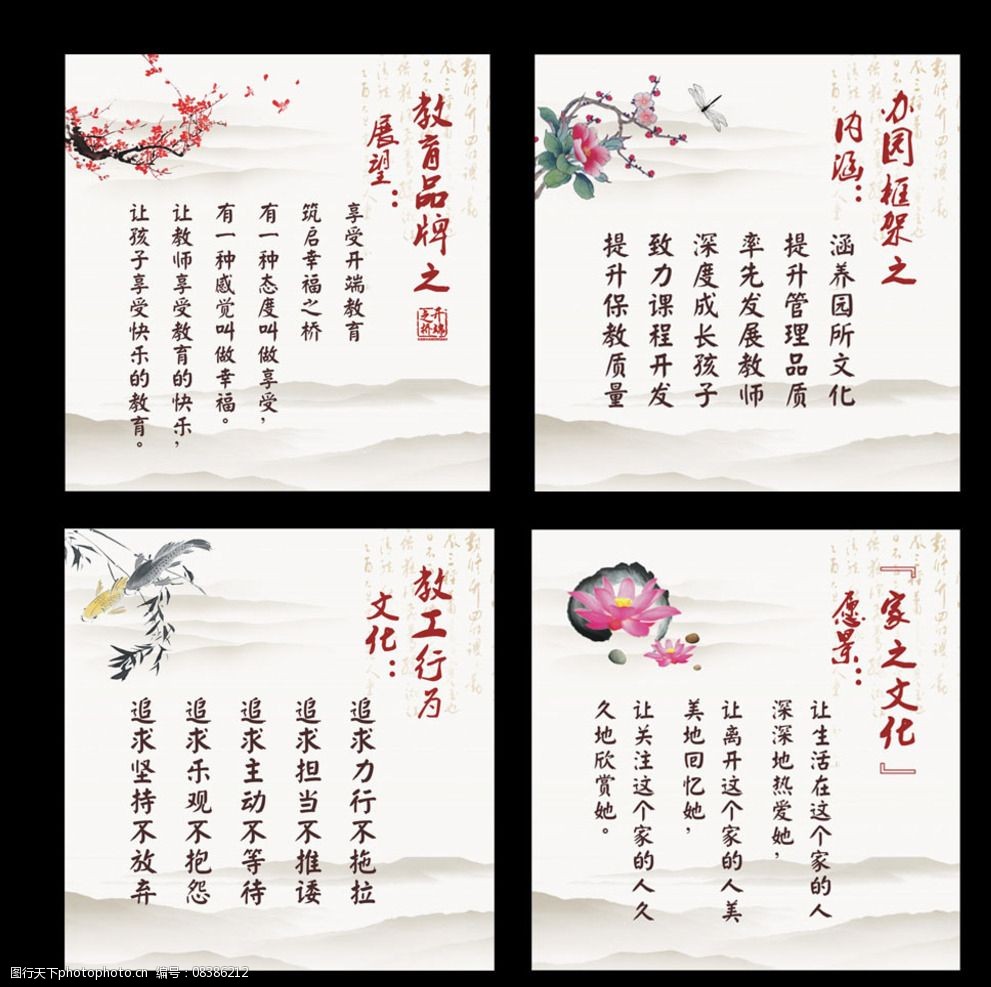 教育品牌之
展望：
享受开端教育
筑启幸福之桥
有一种态度叫做享受，
有一种感觉叫做幸福。
让教师享受教育的快乐，
让孩子享受快乐的教育。
开端
之桥
办园框架之
内涵：
涵养园所文化
提升管理品质
率先发展教师
深度成长孩子
致力课程开发
提升保教质量
教工行为
文化：
追求力行不拖拉
追求担当不推诿
追求主动不等待
追求乐观不抱怨
追求坚持不放弃
『家之文化』
愿景：
让生活在这个家的人
深深地热爱她，
让离开这个家的人美
美地回忆她，
让关注这个家的人久
久地欣赏她。
图行天下photophoto.cn 编号：08386212